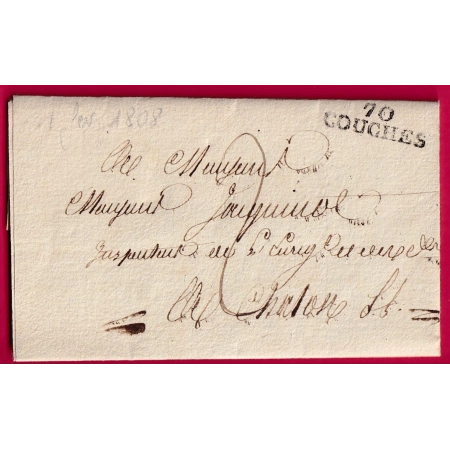 1 fev. 1808
70
COUCHES
A Monsieur
Monsieur Jacquinot
Inspecteur de l'Enregistrement
A Chalon S. S.